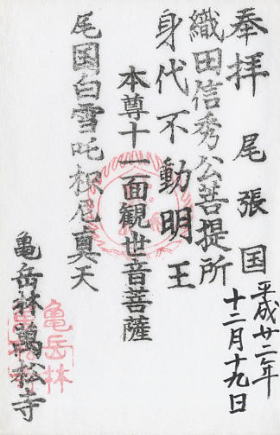 奉拝 尾張国
平成廿二年
十二月十九日
織田信秀公菩提所
身代不動明王
本尊十一面観世音菩薩
尾国白雪吒枳尼真天
亀岳林萬松寺
亀岳林